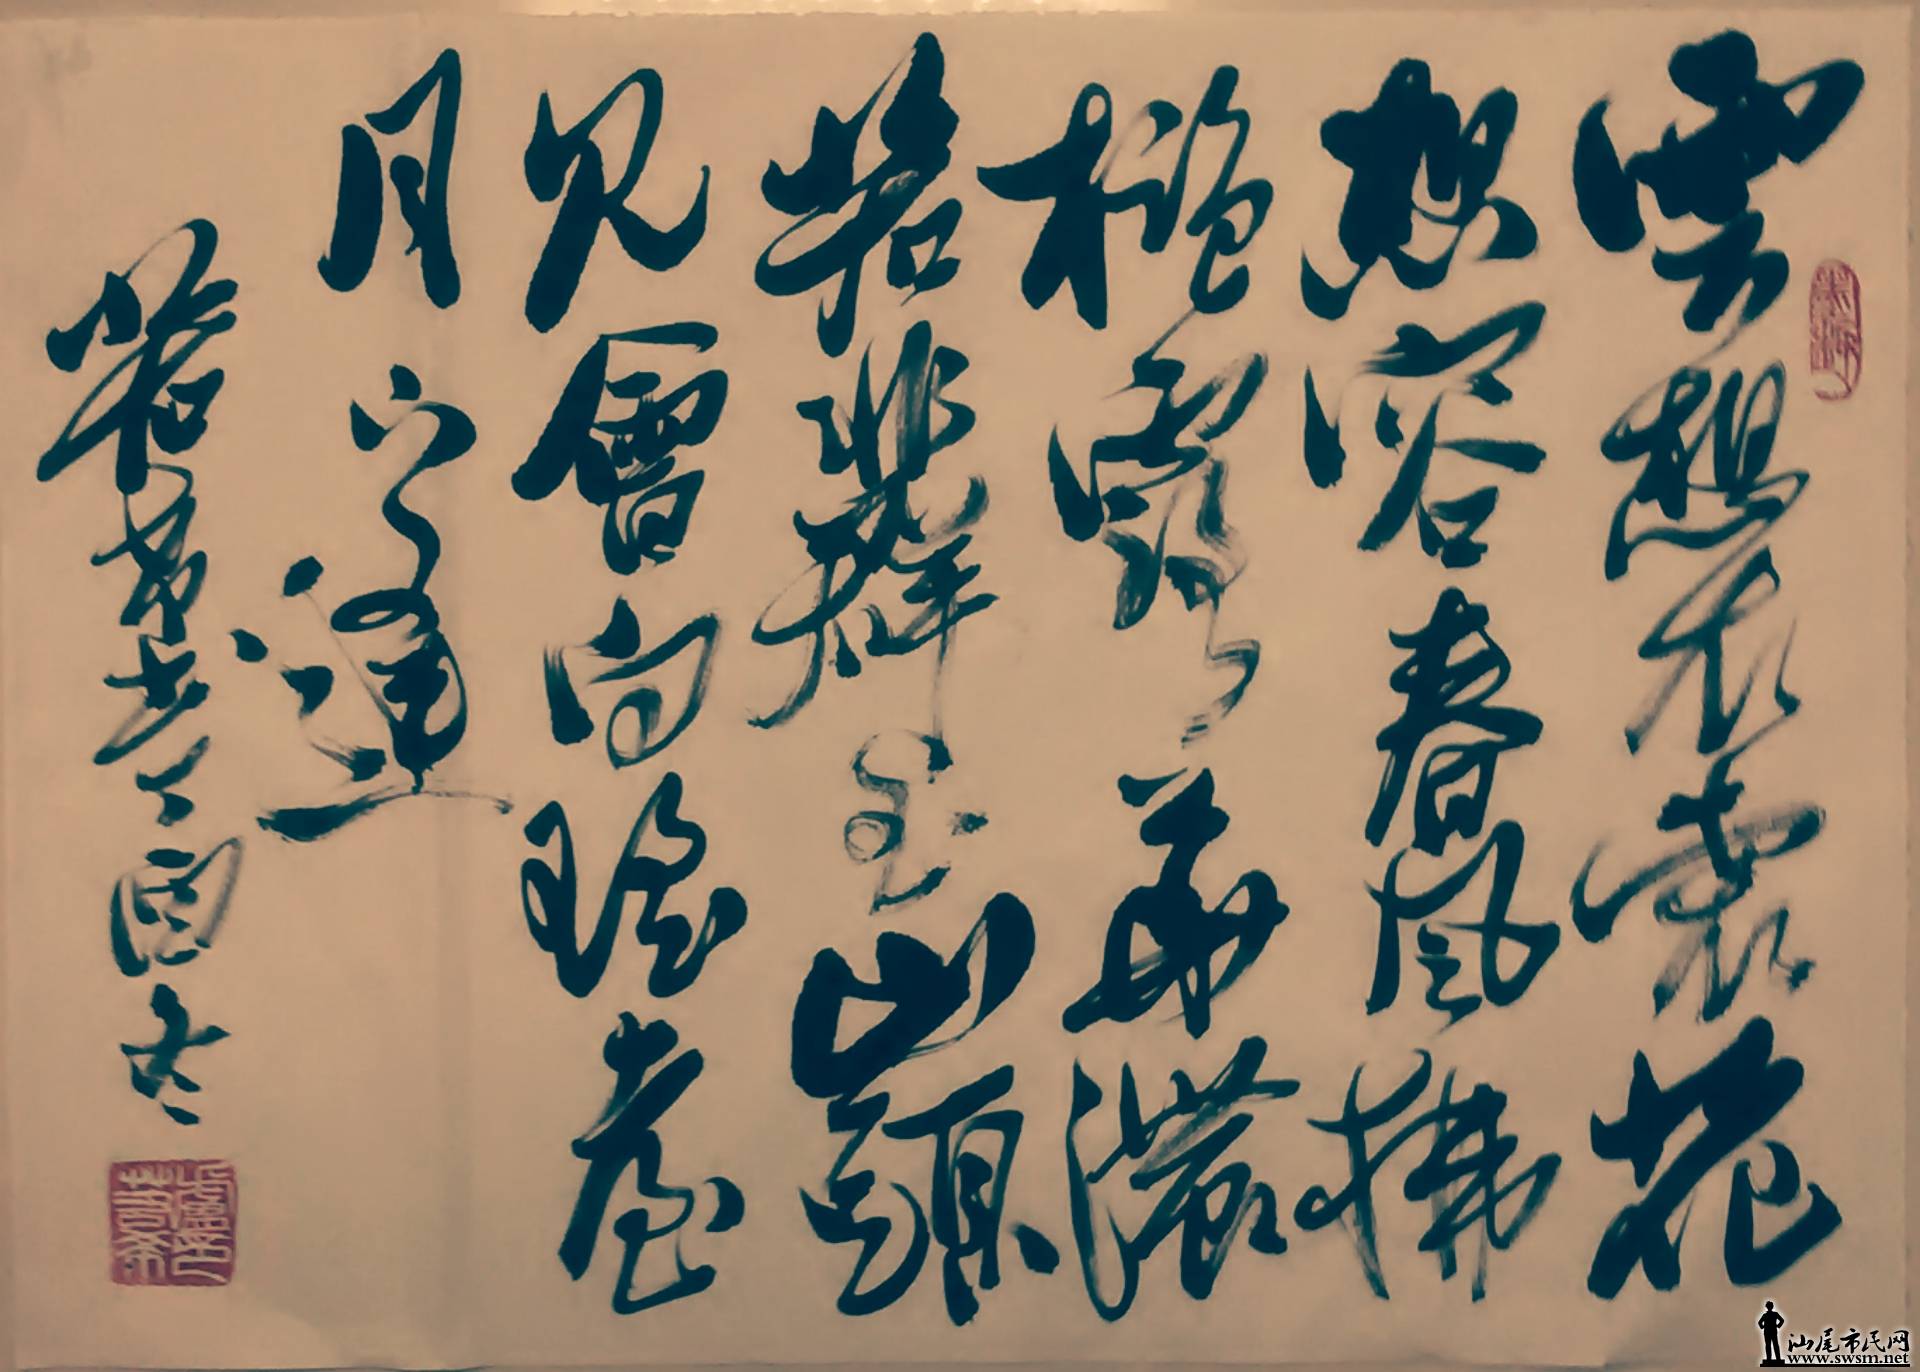 雲想衣裳花
想容春風拂
檻露華濃
若非群玉山頭
見會向瑤臺
月下逢
汕尾市民网
www.swsm.net